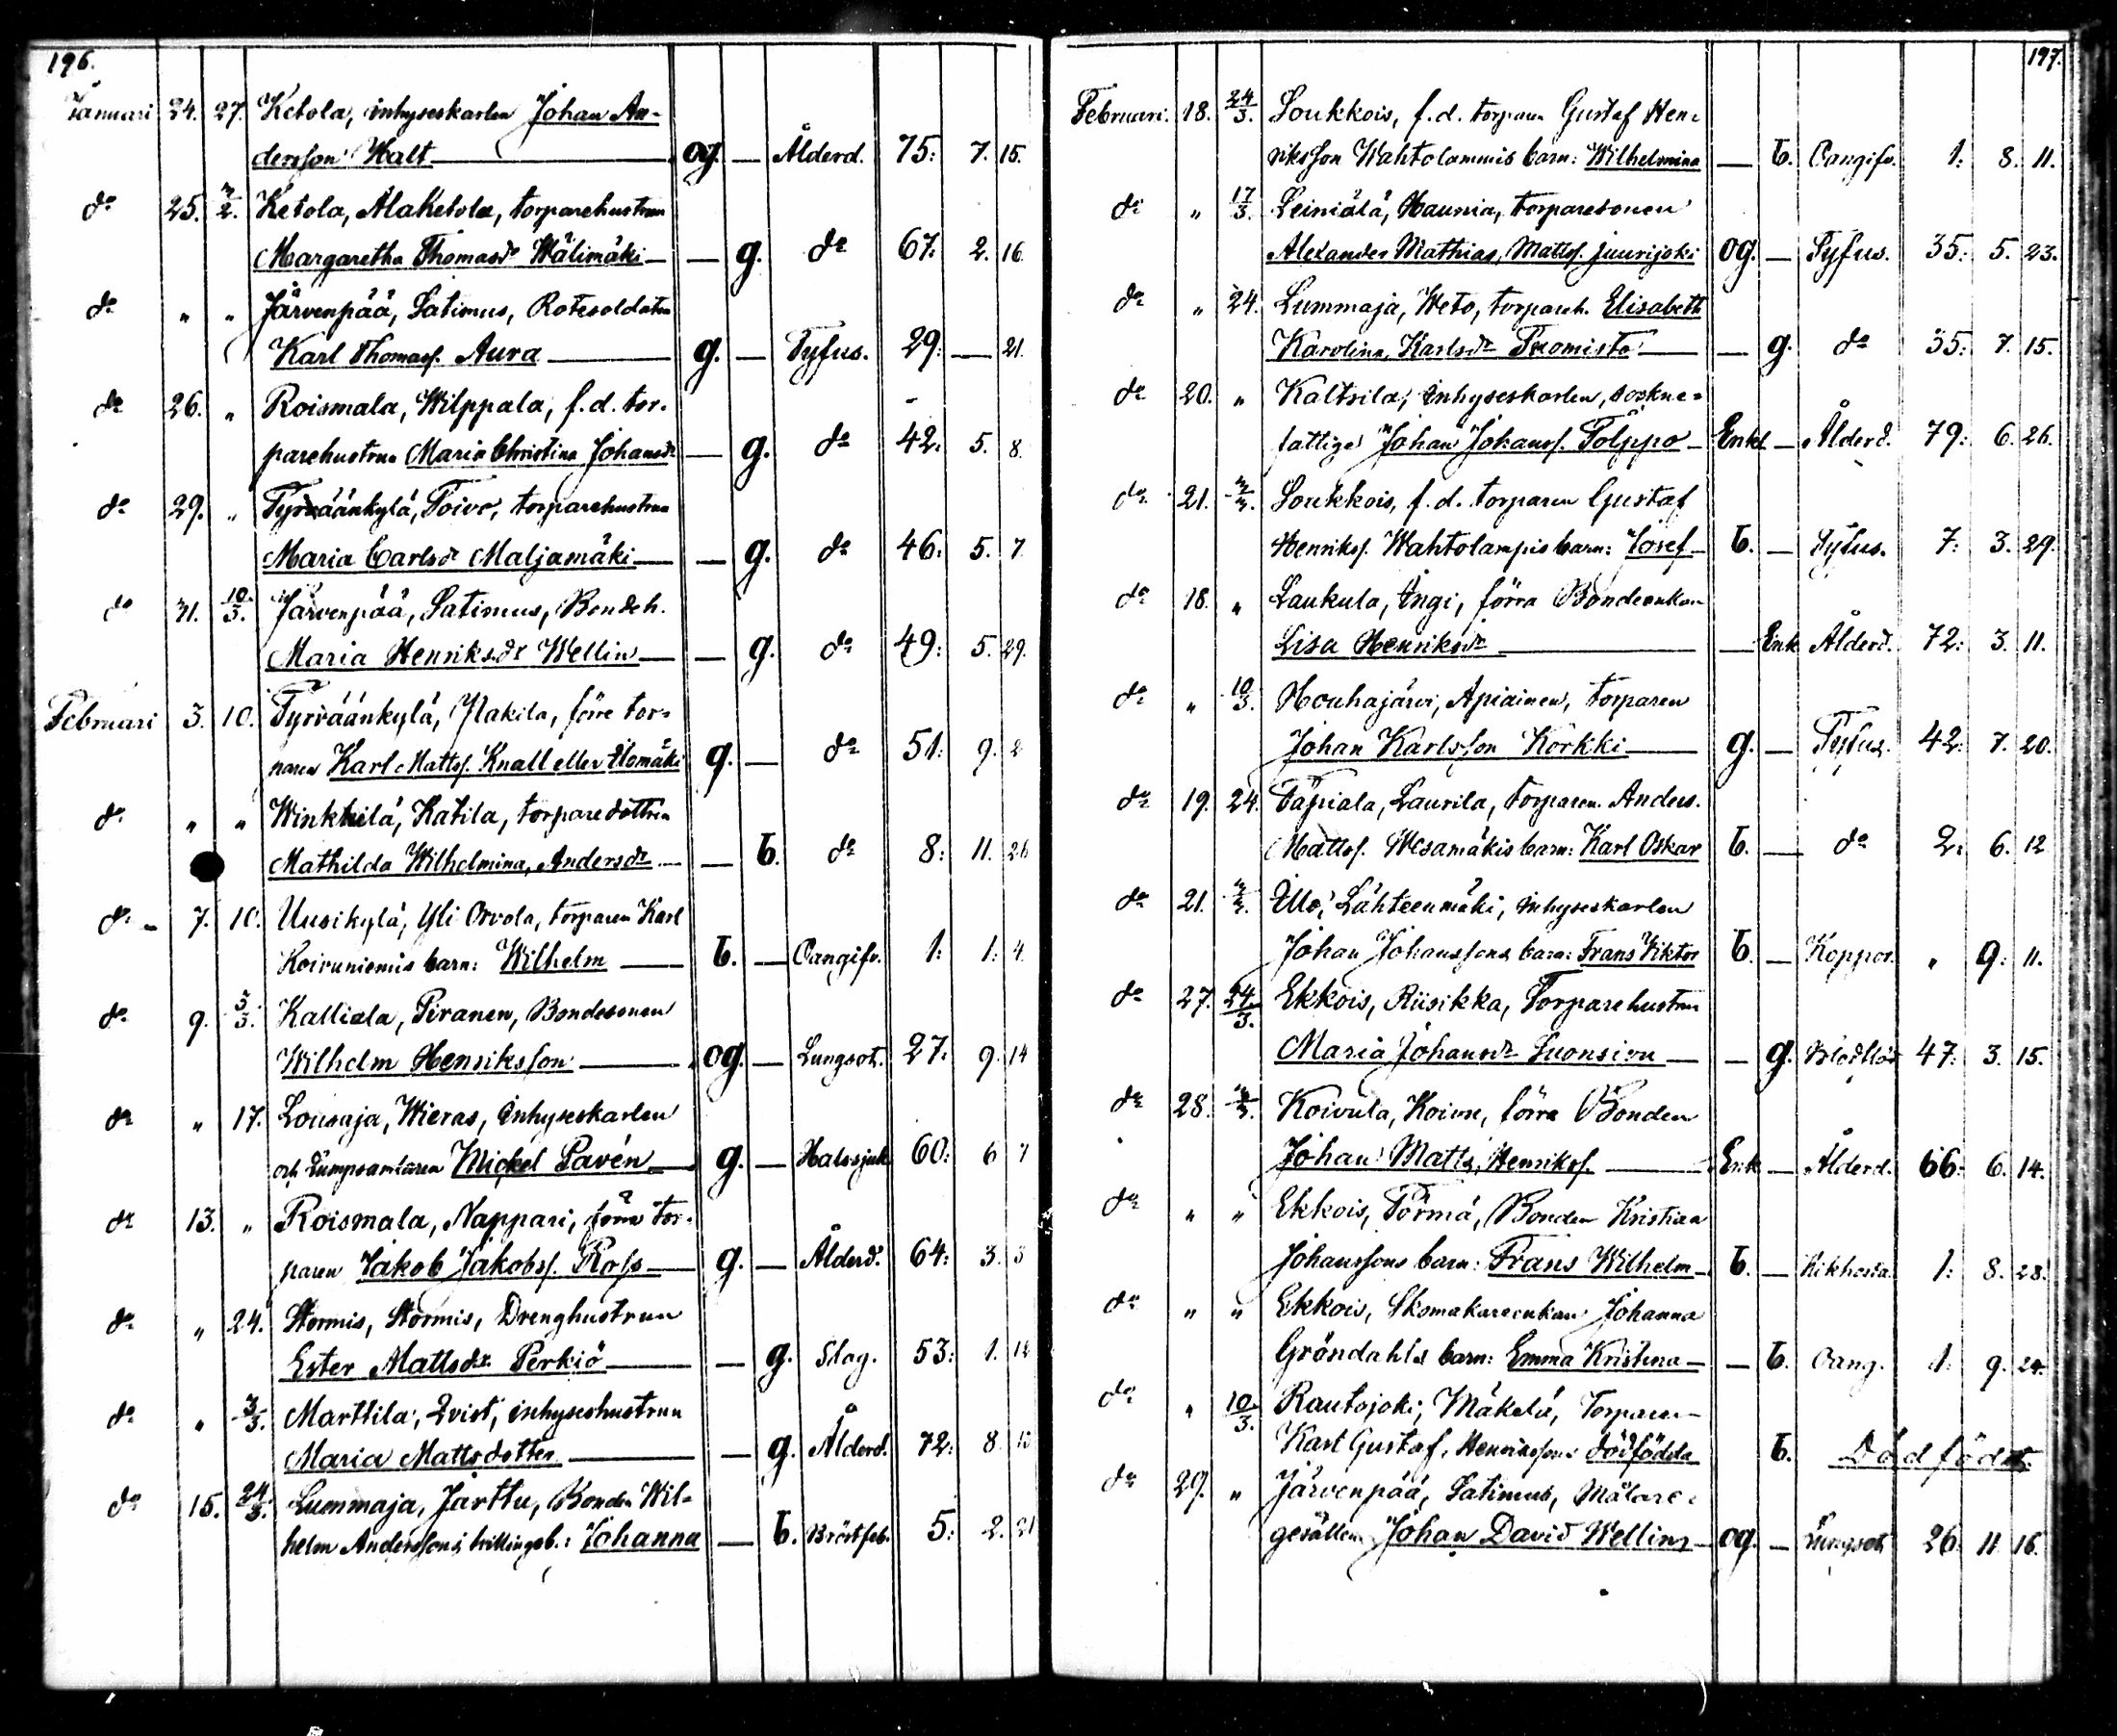 196.
Januari 24. 27. Ketola, inhyseskarlen Johan An-
dersson Halt og — Ålderd. 75: 7. 15.
do 25. 2/2. Ketola, Alaketola, torparehustrun
Margaretha Thomasdr Wälimäki — g. do 67: 2. 16
do " " Järvenpää, Satimus, Rotesoldaten
Karl Thomass. Aura g. — Tyfus. 29: — 21.
do 26. " Roismala, Wilppala, f. d. tor-
parehustrun Maria Christina Johansdr — g. do 42: 5. 8.
do 29. " Tyrväänkylä, Toivo, torparehustrun
Maria Carlsdr Maljamäki — g. do 46: 5. 7
do 31. 10/3. Järvenpää, Satimus, Bondeh.
Maria Henriksdr Wellin — g. do 49: 5. 29.
Februari 3. 10. Tyrväänkylä, förre tor-
paren Karl Mattss. Knall eller g. — do 51: 9. 2
do " " Winkkilä, Katila, torparedottren
Mathilda Wilhelmina, Andersdr — b. do 8: 11. 26
do 7. 10. Uusikylä, Yli Orvola, torparen Karl
Koivuniemis barn: Wilhelm b. — Oangifv. 1: 1. 4.
do 9. 3/3. Kalliala, Piranen, Bondesonen
Wilhelm Henriksson og — Lungsot. 27: 9. 14
do " 17. Lousaja, Wieras, inhyseskarlen
och Lumpsamlaren Mickel Pavén g. — Halssjuk. 60: 6 7
do 13. " Roismala, Nappari, förre tor-
paren Jakob Jakobss. Ross g. — Ålderd. 64: 3. 3
do " 24. Stormis, Stormis, Drenghustrun
Ester Mattsdr Perkiö — g. Slag. 53: 1. 14
do " 3/3. Marttila, Qvist, inhyseshustrun
Maria Mattsdotter — g. Ålderd. 72: 8.
do 15. 24/3. Lummaja, Järttu, Bonden Wil-
helm Anderssons trillingsb.: Johanna — b. Bröstfeb. 5: 2. 21
197.
Februari. 18. 24/3. Soukkois, f. d. torparen Gustaf Hen-
riksson Wahtolammis barn: Wilhelmina — b. Oangifv. 1: 8. 11.
do " 17/3. Leiniälä, Haunia, torparesonen
Alexander Mathias, Mattss. Juurijoki og. — Tyfus. 35: 5. 23.
do " 24. Lummaja, Weto, torpareh. Elisabeth
Karolina, Karlsdr Tuomisto — g. do 35: 7. 15.
do 20. " Kaltsila, inhyseskarlen, sockne-
fattige Johan Johanss. Tolppo Enkl — Ålderd. 79: 6. 26.
do 21. 3/3. Soukkois, f. d. torparen Gustaf
Henrikss. Wahtolampis barn: Josef b. — Tyfus. 7: 3. 29.
do 18. " Laukula, Ingi, förra Bondeenkan
Lisa Henriksdr — Enk Ålderd. 72: 3. 11.
do " 10/3. Houhajärvi, Apiainen, torparen
Johan Karlsson Körkki g. — Tyfus. 42: 7. 20.
do 19. 24. Tapiala, Laurila, torparen Anders.
Mattss. Wesamäkis barn: Karl Oskar b. — do 2: 6. 12
do 21. 3/3. Illo, Lähteenmäki, inhyseskarlen
Johan Johanssons barn: Frans Viktor b. — Koppor. " 9: 11.
do 27. 24/3. Ekkois, Riisikka, Torparehustrun
Maria Johansdr Luonsivu — g. 47: 3. 15.
do 28. 3/3. Koivula, Koivu, förra Bonden
Johan Matts, Henrikss. Enk — Ålderd. 66: 6. 14.
do " " Ekkois, Törmä, Bonden Kristian
Johanssons barn: Frans Wilhelm b. — Kikhosta. 1: 8. 28.
do " " Ekkois, Skomakareenkan Johanna
Gröndahls barn: Emma Kristina — b. Oang. 1: 9. 24.
do " 10/3. Rautajoki, Mäkelä, Torparen
Karl Gustaf, Henrikssons dödfödda b. Dödfödt
do 29. " Järvenpää, Satimus, Målare-
gesällen Johan David Wellin og. — Lungsot 26: 11 16.